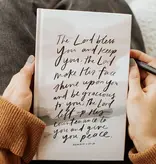 The Lord bless
you and keep
you; the Lord
make His face
shine upon you
and be gracious
to you; the Lord
lift up His
countenance to
you and give
you peace